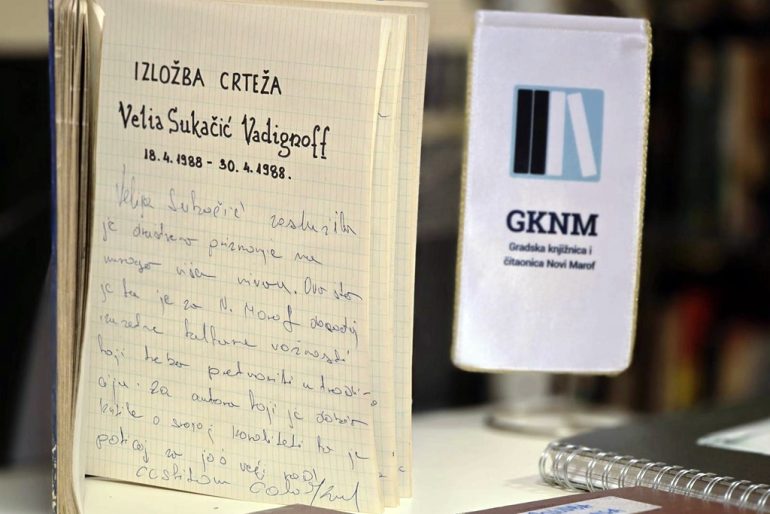 IZLOŽBA CRTEŽA
Velia Sukačić Vadignoff
18.4.1988 - 30.4.1988.
Velia Sukačić zaslužila
je društveno priznanje na
mnogo višem nivou. Ovo što
je tu je za N. Marof događaj
izuzetne kulturne važnosti
koji treba pretvoriti u tradi-
ciju. Za autora koji je dobio
kritike o svojoj kvaliteti to je
poticaj za još veći rad
čestitam
GKNM
Gradska knjižnica i
čitaonica Novi Marof